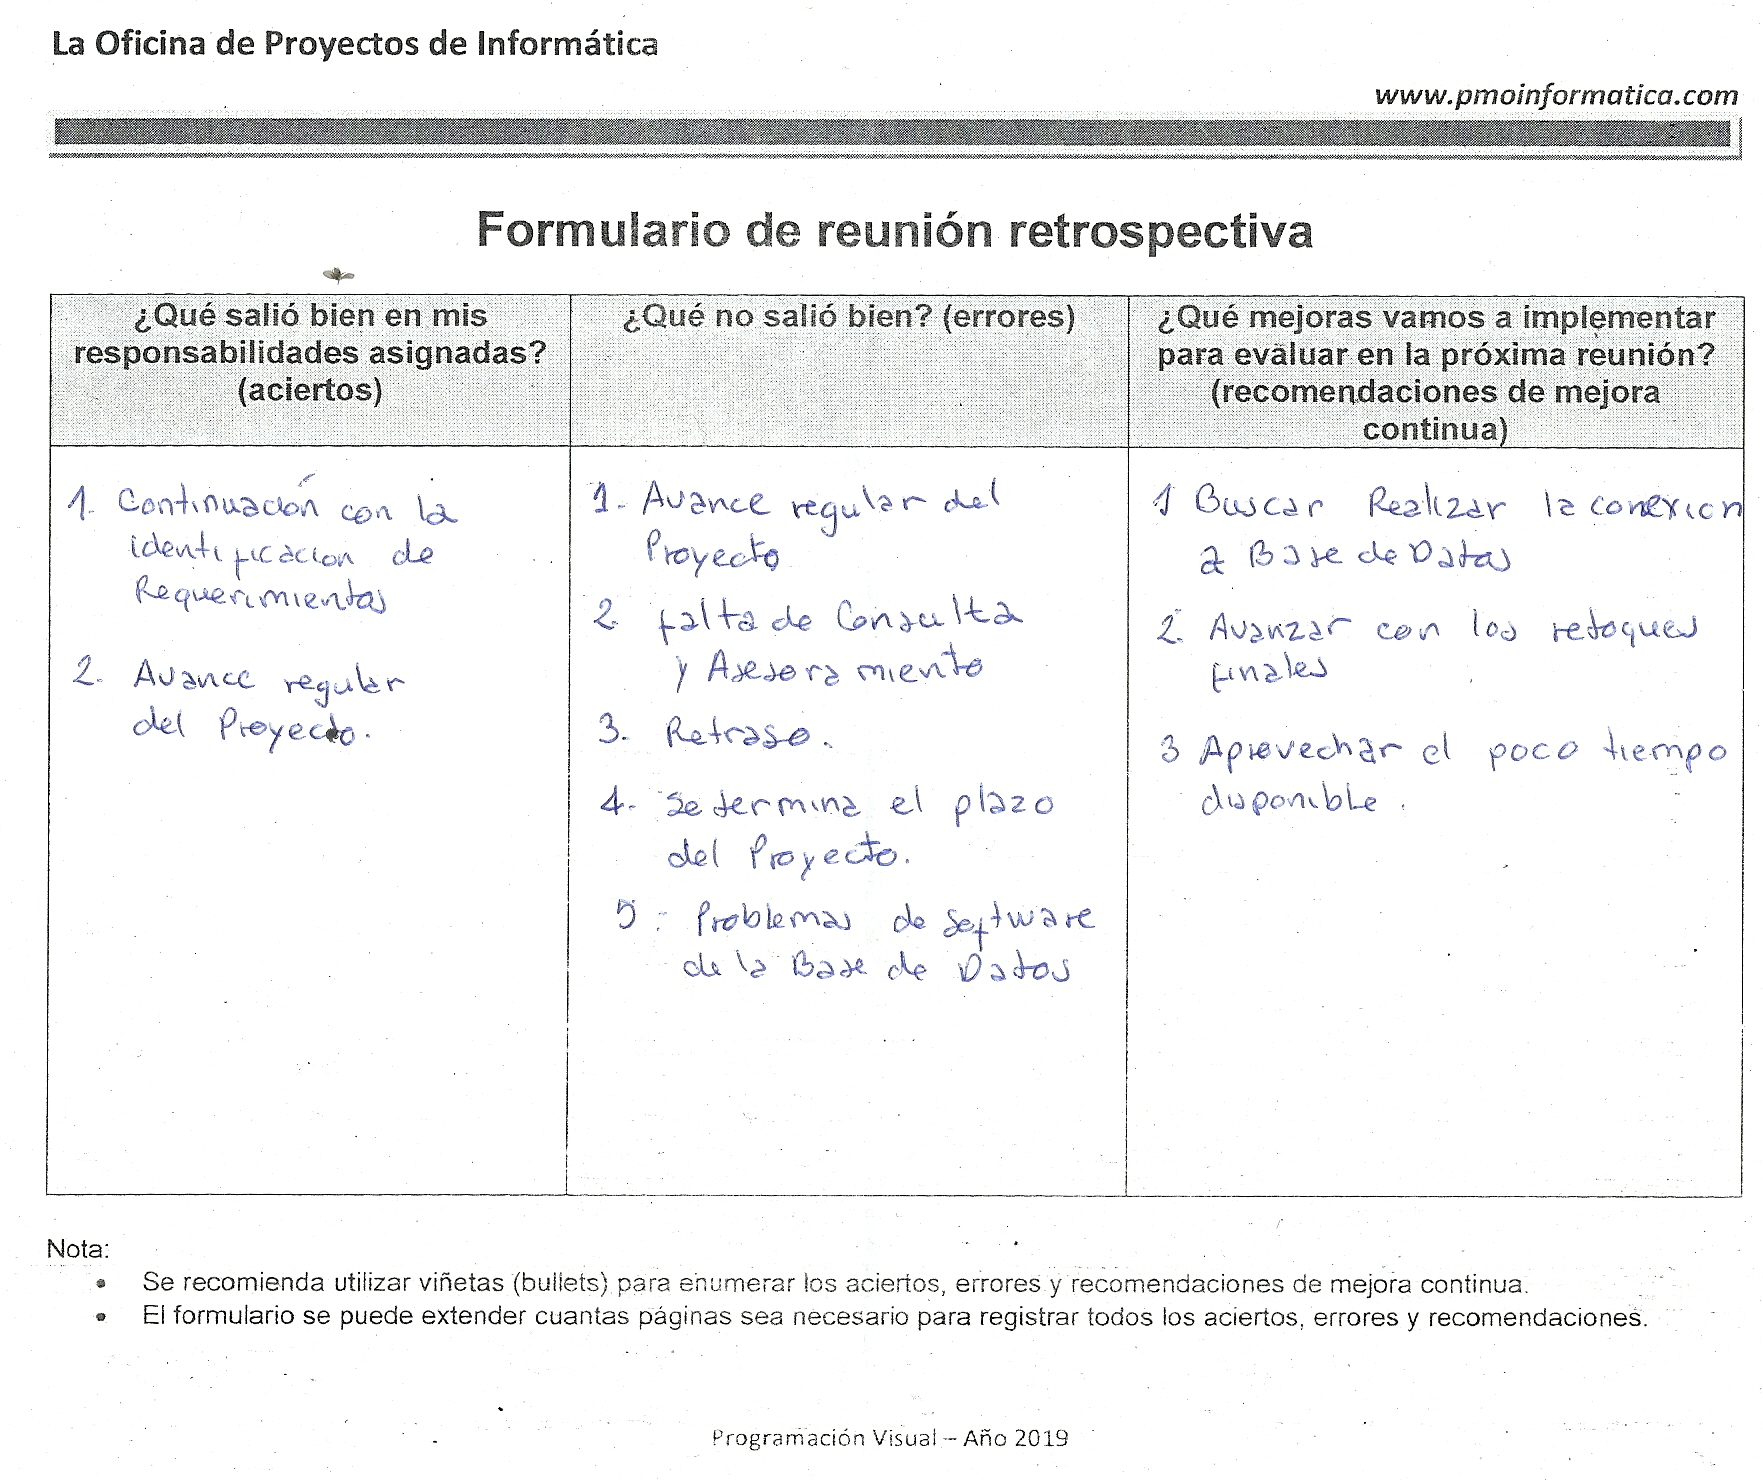 La Oficina de Proyectos de Informática
www.pmoinformatica.com
Formulario de reunión retrospectiva
¿Qué salió bien en mis
responsabilidades asignadas?
(aciertos)
¿Qué no salió bien? (errores)
¿Qué mejoras vamos a implementar
para evaluar en la próxima reunión?
(recomendaciones de mejora
continua)
1. Continuación con la
identificacion de
Requerimientos
2. Avance regular
del Proyecto.
1- Avance regular del
Proyecto
2. falta de Consulta
y Asesoramiento
3. Retraso.
4- Se termina el plazo
del Proyecto.
5: Problemas de Software
de la Base de Datos
1 Buscar Realizar la conexion
a Base de Datos
2. Avanzar con los retoques
finales
3 Aprovechar el poco tiempo
disponible.
Nota:
• Se recomienda utilizar viñetas (bullets) para enumerar los aciertos, errores y recomendaciones de mejora continua.
• El formulario se puede extender cuantas páginas sea necesario para registrar todos los aciertos, errores y recomendaciones.
Programación Visual – Año 2019